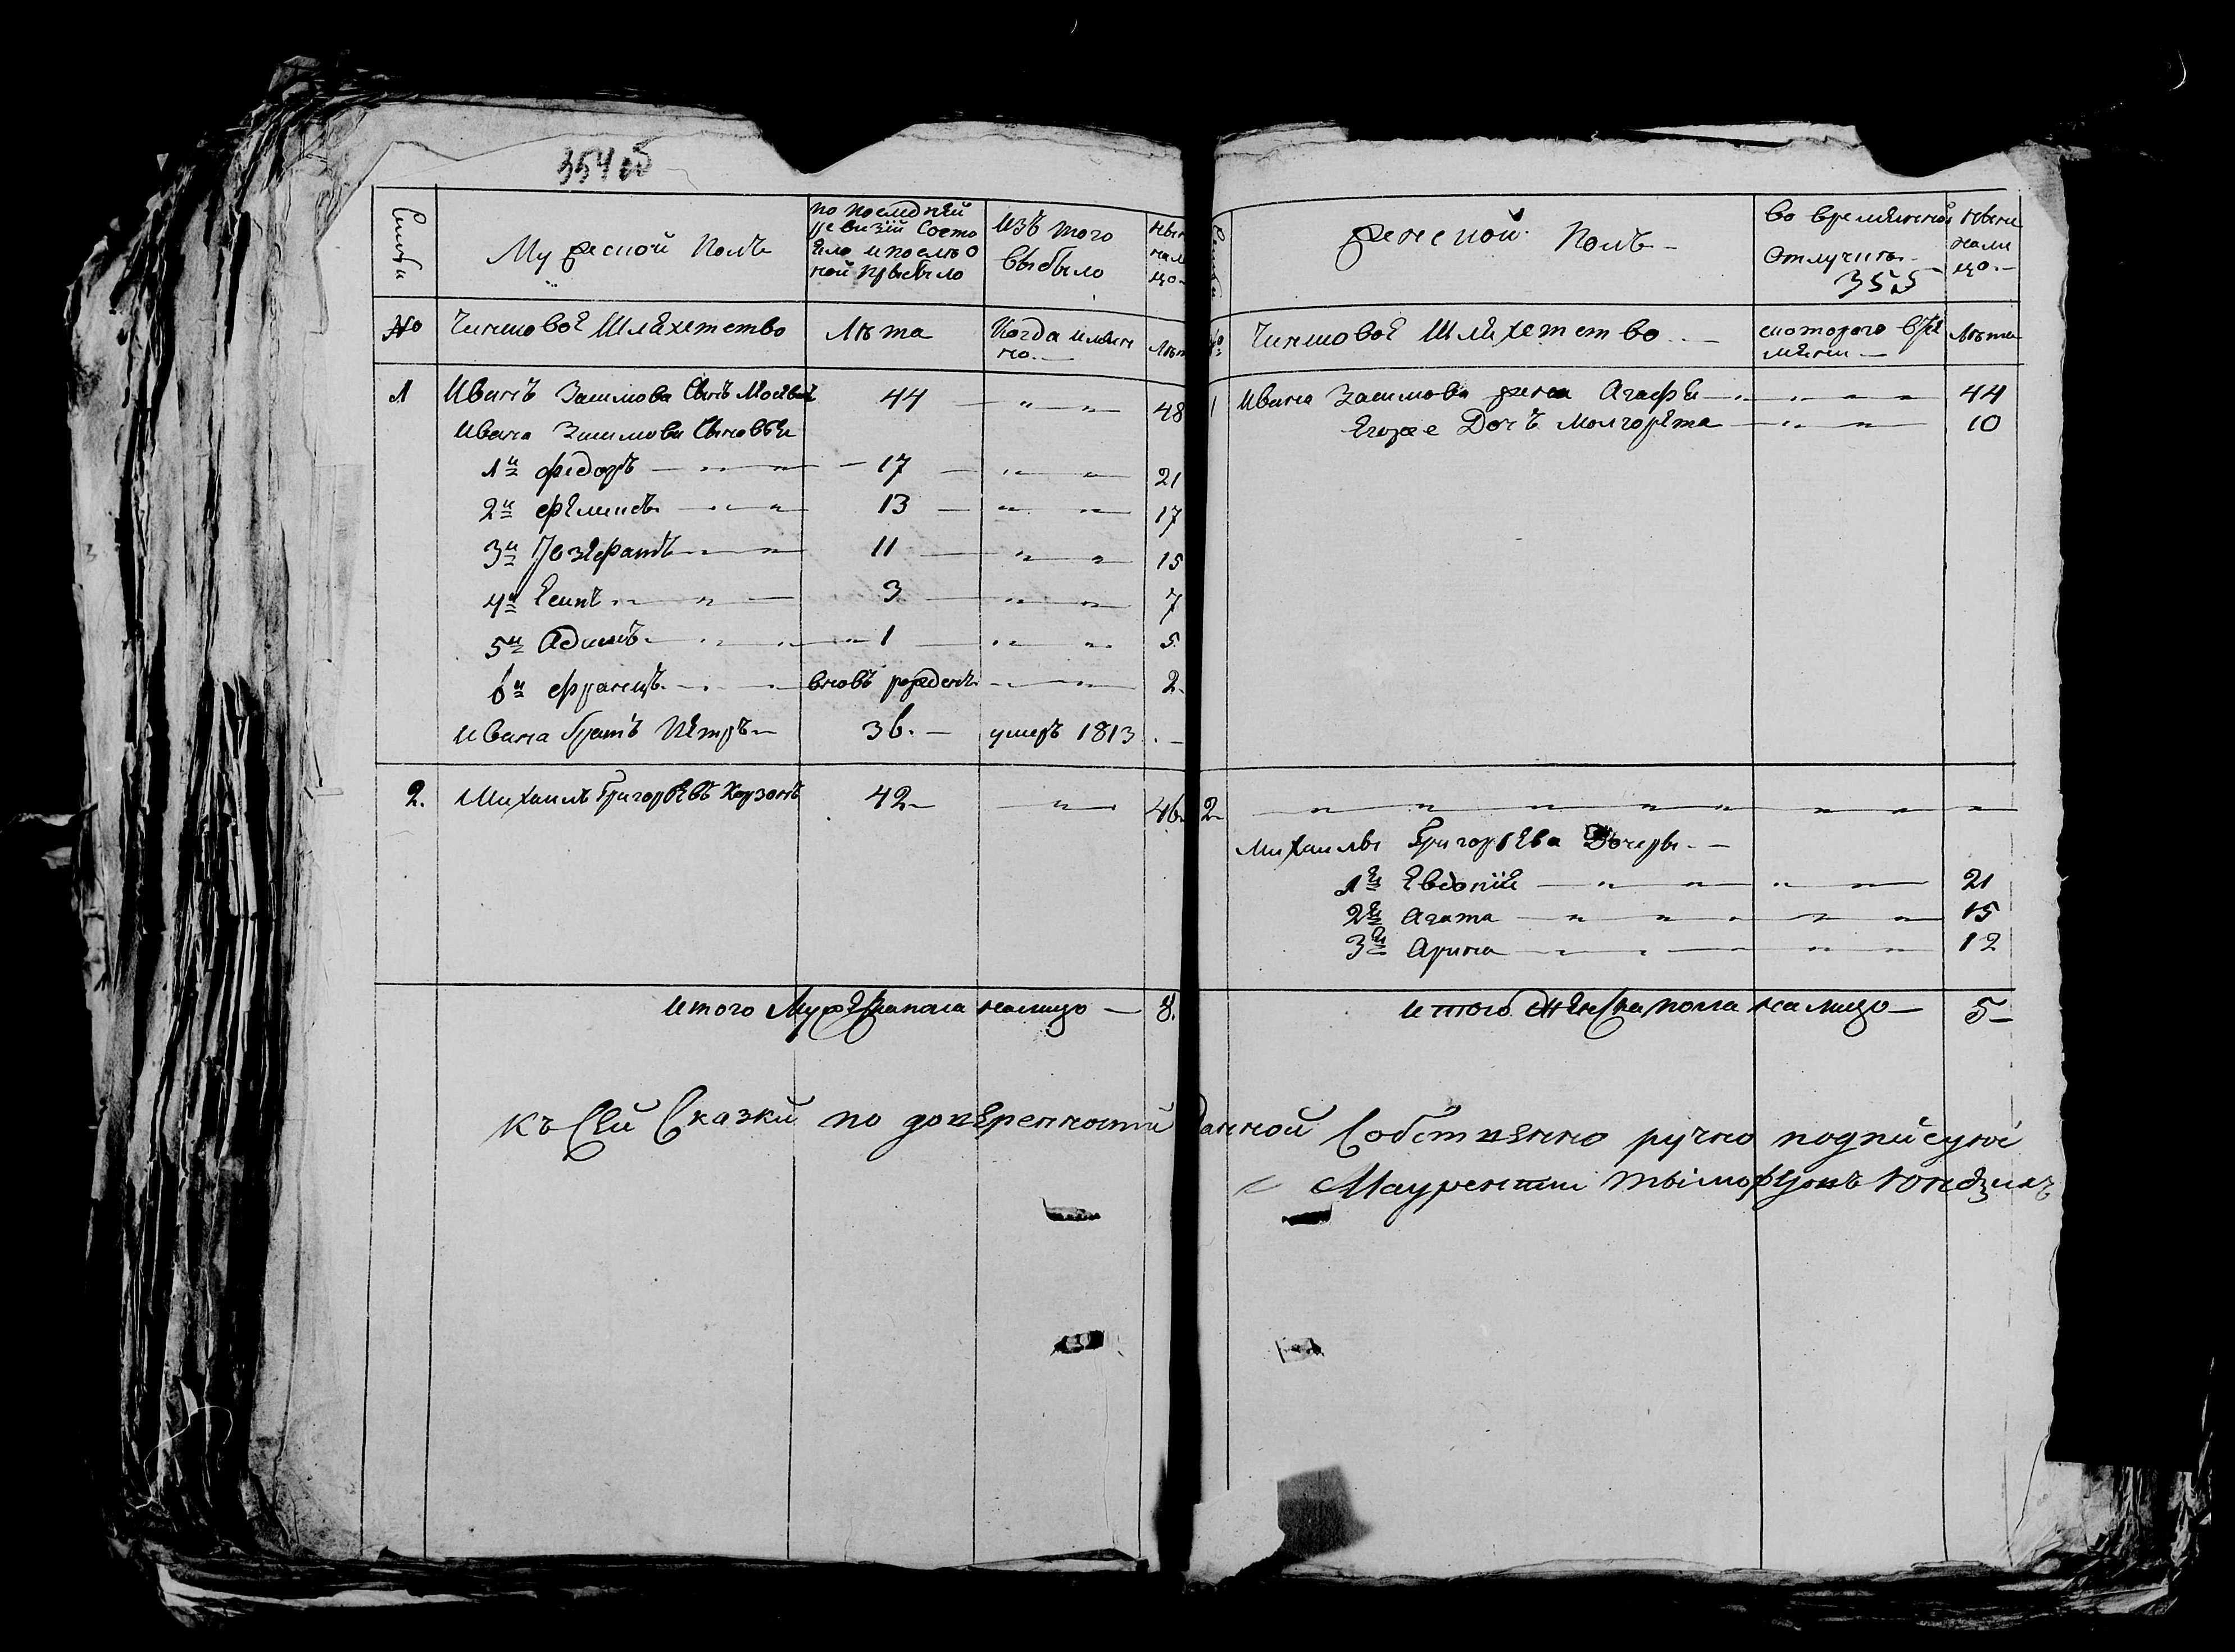 354 об
Семьи
Мужеской Полъ
по последнѣй
ревизіи Состо
яло и послѣ о
ной прыбыло
Изъ того
выбыло
ныне
нали
цо
№
Чиншовоѣ Шляхетство
Лѣта
Когда имян
но.
Лѣт
1
Иванъ Зашмова Сынъ
44
48
Ивана Зашмова Сыновѣи
1й Федоръ
17
21
2й Феликсъ
13
17
3й Іозефатъ
11
15
4й Есипъ
3
7
5й Адамъ
1
5
6й Францъ
вновъ рожденъ
2
Ивана братъ Петръ
36.
умеръ 1813
2.
Михаилъ Григорѣевъ Корзонъ
42
46
итого Мужеска пола налицо
8.
Женской Полъ
во времянной
Отлучкѣ
355
Ныне
нали
цо.
Чиншовоѣ Шляхетство
с которого врѣ
мяни
Лѣта
1
Ивана Зашмова жена Агафѣя
44
Егоже Дочъ Молгорѣта
10
2
Михаилы Григорѣева Дочеры
1я Евдокія
21
2я Агата
15
3я Арина
12
итого Женска пола на лицо
5
Къ Сей Сказки по доверенности данной Собственно ручно подписуюсь
Маурентии